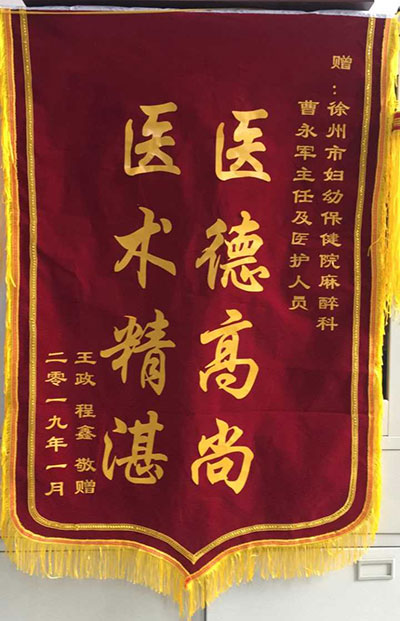 赠：徐州市妇幼保健院麻醉科
曹永军主任及医护人员
医德高尚
医术精湛
王政 程鑫 敬赠
二零一九年一月